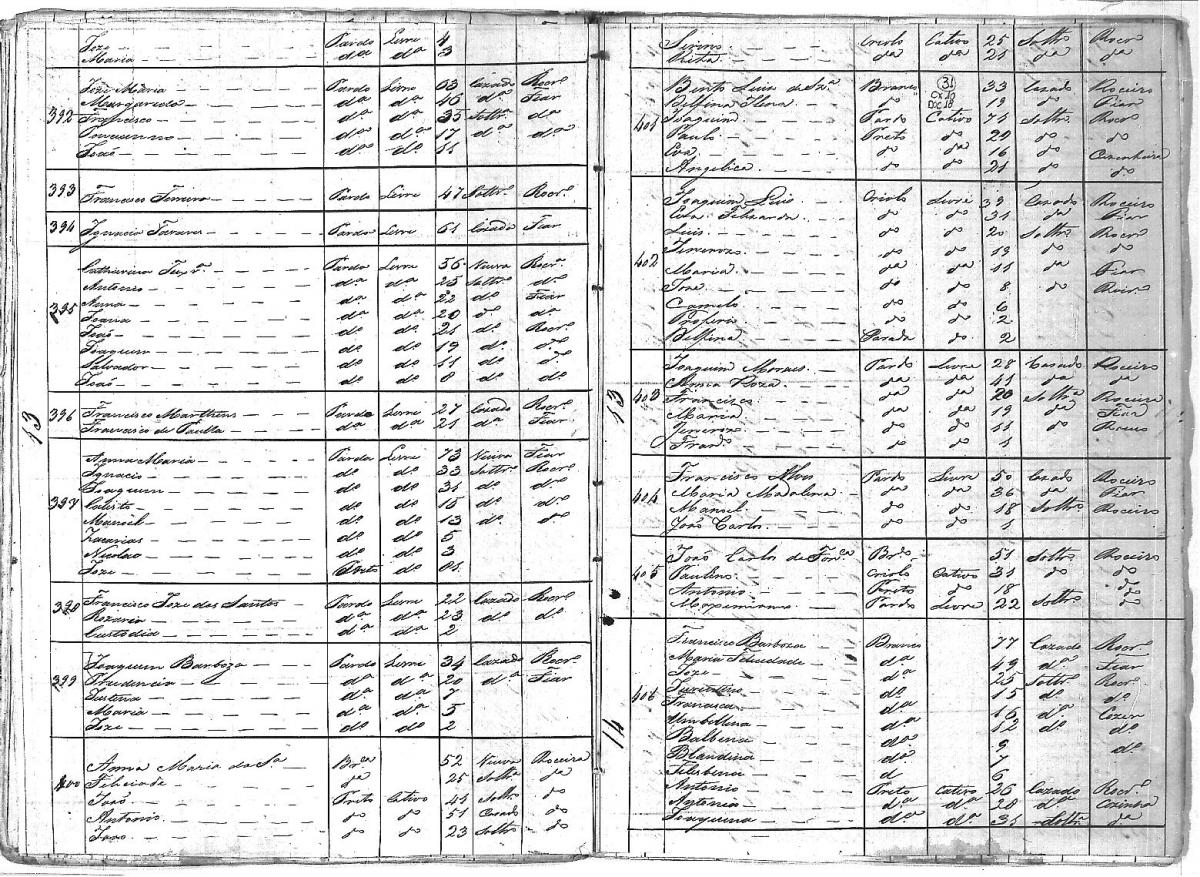 Joze Pardo Livre 4
Maria dª dª 3
392
Joze Maria Pardo Livre 63 Cazado Rocrº
Margarida dª dª 46 dª Fiar
Francisco dª dª 35 Soltrº dª
dª dª 17 dª dª
João dº dº 11
393 Francisco Pardo Livre 47 Soltrº Rocrº
394 Ignacio Pardo Livre 61 Cazado Fiar
395
Catharina Parda Livre 56 Viuva Rocrº
Antonio dª dª 25 Soltrº dº
Anna dª dª 22 dº Fiar
Joana dª dª 20 dº dª
João dº dº 21 dº Rocrº
Joaquim dº dº 19 dº dº
Salvador dº dº 11 dº dº
João dº dº 8 dº dº
13
396
Francisco Marthins Pardo Livre 27 Cazado Rocrº
Francisca de Paulla dª dª 21 dª Fiar
397
Anna Maria Parda Livre 73 Viuva Fiar
Ignacio dº dº 33 Soltrº Rocrº
Joaquim dº dº 31 dº dº
Calisto dº dº 15 dº dº
Manoel dº dº 13 dº dº
Zacarias dº dº 5
Nicolao dº dº 3
Joze Preto dº 81
398
Francisco Joze dos Santos Pardo Livre 22 Cazado Rocrº
Rozaria dª dª 23 dº dº
Custodia dª dª 2
399
Joaquim Barboza Pardo Livre 34 Cazado Rocrº
Prudencia dª dª 20 dª Fiar
Justina dª dª 7
Maria dª dª 5
Joze dº dº 2
400
Anna Maria da Sª Brca 52 Viuva Roceira
Felicidade dª 25 Soltrª dª
João Preto Cativo 41 Soltrº do
Antonio do do 51 Cazado do
João do do 23 Soltrº do
Criolo Cativo 25 Soltrº Rocrº
Rita da da 21 da da
401
Bento Luis de Szª Branco 33 Cazado Roceiro
31
Cx 10
Doc 18
Delfina do 19 do Fiar
Joaquim Pardo Cativo 71 Soltrº Rocrº
Paulo Preto do 29 do do
Eva do da 16 do Cozinheira
Angelica do do 21 do do
402
Joaquim Luis Criolo Livre 39 Cazado Roceiro
do do 31 da Fiar
Luis do do 20 Soltrº Rocrº
do do 19 do do
Maria da da 11 da Fiar
Joze do do 8 do
Camelo do do 6
do do 2
Delfina Parda do 2
403
Joaquim Moraes Pardo Livre 28 Cazado Roceiro
Anna Roza da da 41 da da
Francisca da da 20 Soltrª Roceira
Maria da da 19 da Fiar
do do 11 do
do do 1
13
404
Francisco Alves Pardo Livre 50 Cazado Roceiro
Maria Madalena da da 36 da Fiar
Manoel do do 18 Soltrº Roceiro
João Carlos do do 1
405
João Carlos de Brco 51 Soltrº Roceiro
Paulino Criolo Cativo 31 do do
Antonio Preto do 18 do
Pardo Livre 22 Soltrº do
406
Francisco Barboza Branco 77 Cazado Rocrº
Maria Felicidade dª 49 dª Fiar
Joze dª 25 Soltrº Rocrº
dº 15 dº dº
Francisca dª 16 dª Cozer
Umbellina dª 12 dº dº
Balbina dª 9 dº
Blandina dª 7
d 6
Antonio Preto Cativo 26 Cazado Rocrº
Antonia dª dª 28 dª Cozinha
Joaquina dª dª 31 Soltrª dª
14